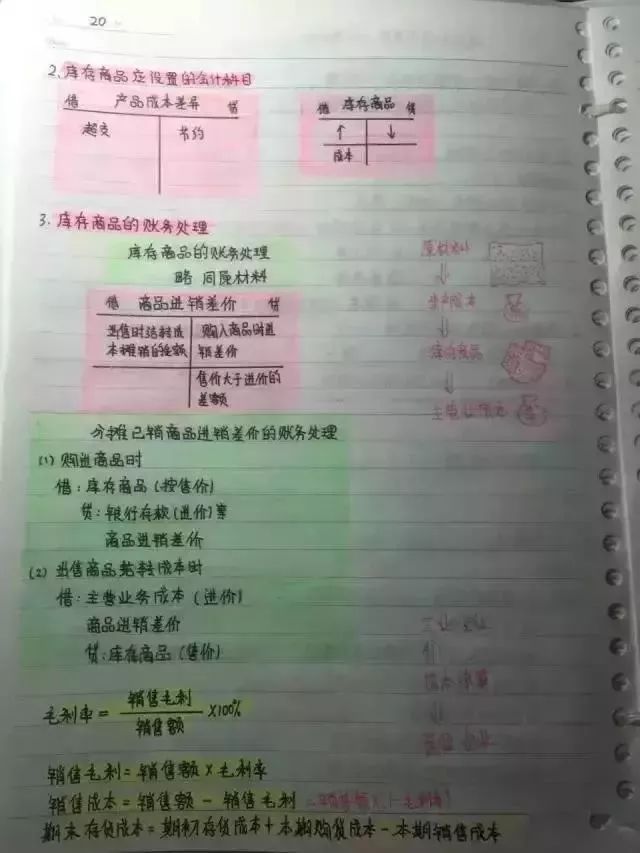 20
2、库存商品应设置的会计科目
借 产品成本差异 贷
超支 节约
借 库存商品 贷
↑ ↓
成本
3、库存商品的账务处理
库存商品的账务处理
略 同原材料
借 商品进销差价 贷
出售时结转进 购入商品时进
本摊销的差额 销差价
售价大于进价的
差额
原材料
⇓
生产成本
↓
库存商品
↓
主营业务成本
分摊已销商品进销差价的账务处理
(1) 购进商品时
借:库存商品(按售价)
贷:银行存款(进价)等
商品进销差价
(2) 出售商品结转成本时
借:主营业务成本(进价)
商品进销差价
贷:库存商品(售价)
工业企业
↓
商业企业
毛利率= 销售毛利/销售额 ×100%
销售毛利=销售额×毛利率
销售成本=销售额-销售毛利 =销售额×(1-毛利率)
期末存货成本=期初存货成本+本期购货成本-本期销售成本